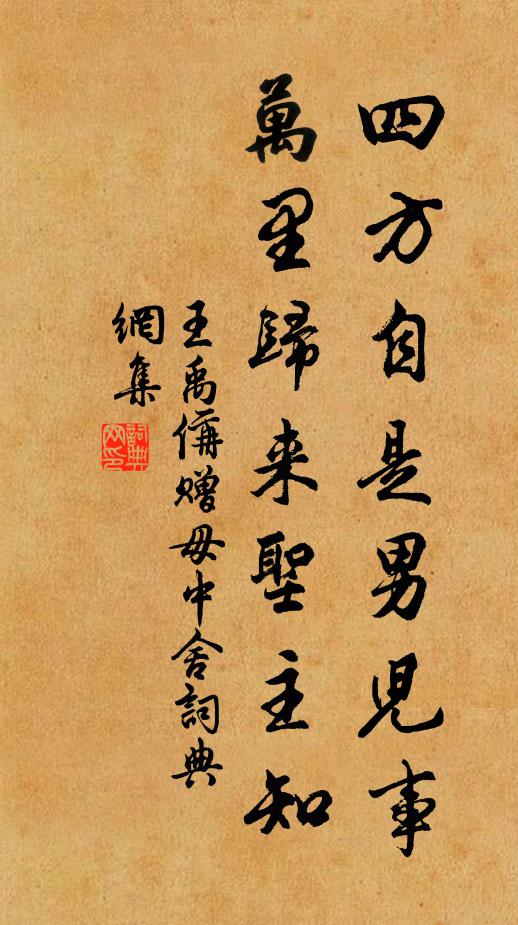 四方自是男兒事
萬里歸来聖主知
王禹偁贈毋中舍詞典
網集
詞典網印